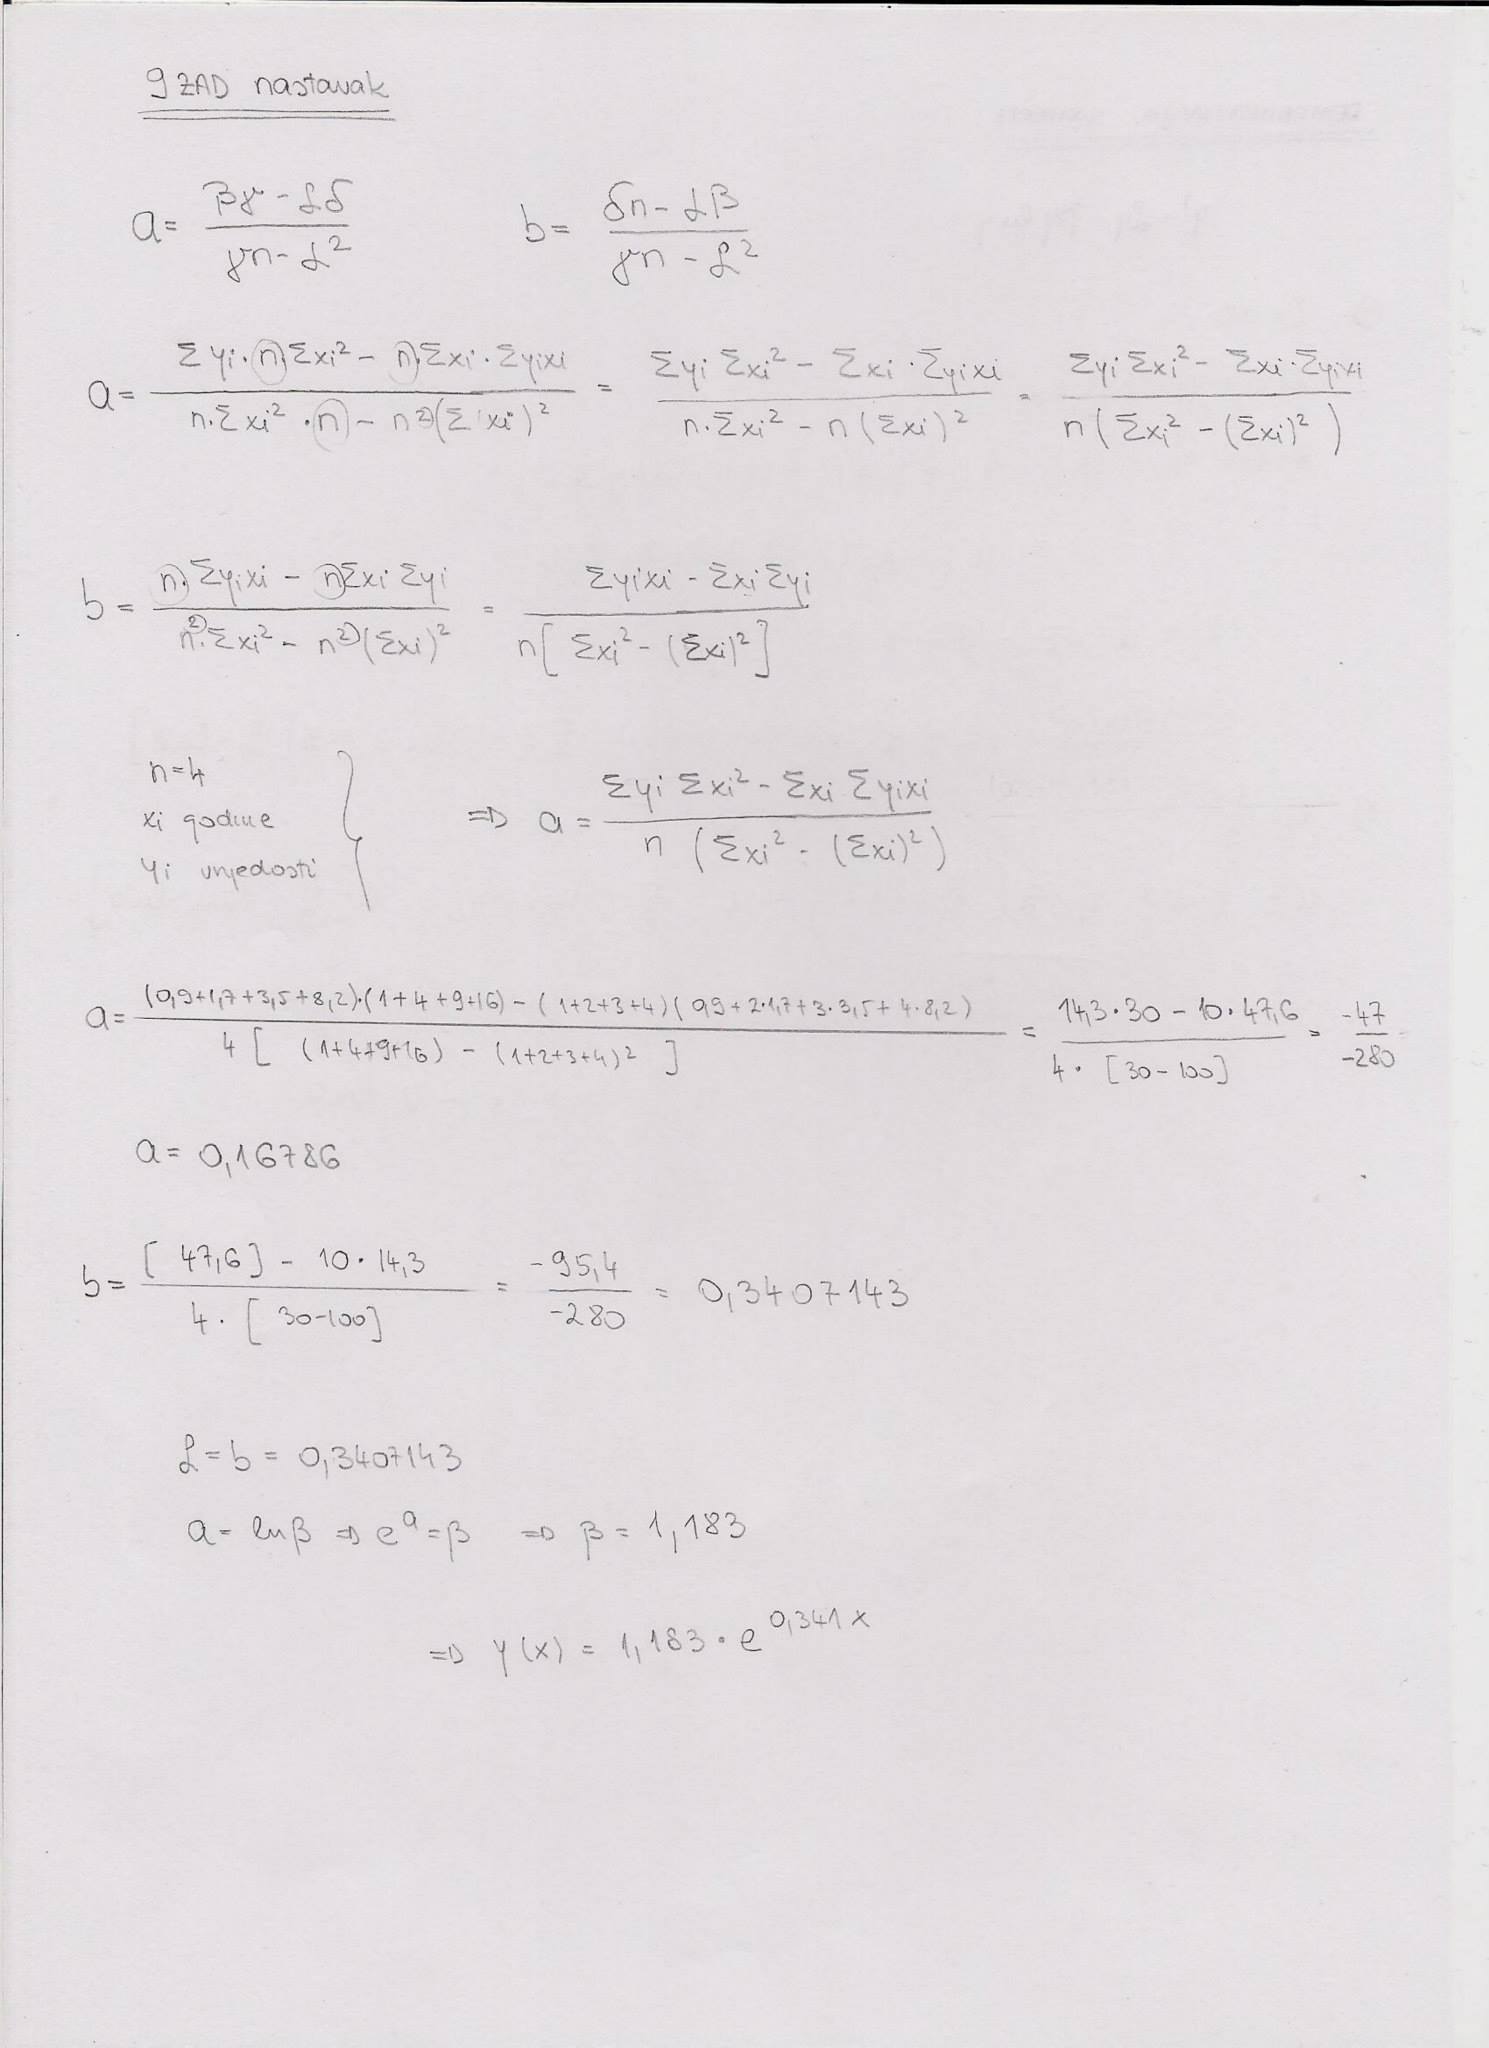 9 ZAD nastavak
a = (βγ - αδ) / (γn - α²)    b = (δn - αβ) / (γn - α²)
a = (Σyi · n · Σxi² - n · Σxi · Σyixi) / (n · Σxi² · n - n²(Σxi)²) = (Σyi Σxi² - Σxi · Σyixi) / (n · Σxi² - n(Σxi)²) = (Σyi Σxi² - Σxi · Σyixi) / (n(Σxi² - (Σxi)²))
b = (n · Σyixi - nΣxi Σyi) / (n² · Σxi² - n²(Σxi)²) = (Σyixi - Σxi Σyi) / (n[Σxi² - (Σxi)²])
n=4
xi godine
yi vrijednosti
=> a = (Σyi Σxi² - Σxi Σyixi) / (n (Σxi² - (Σxi)²))
a = ((0,9+1,7+3,5+8,2)·(1+4+9+16) - (1+2+3+4)(0,9+2·1,7+3·3,5+4·8,2)) / (4[(1+4+9+16) - (1+2+3+4)²]) = (14,3·30 - 10·47,6) / (4·[30-100]) = -47 / -280
a = 0,16786
b = ([47,6] - 10·14,3) / (4·[30-100]) = -95,4 / -280 = 0,3407143
α = b = 0,3407143
a = lnβ => e^a = β => β = 1,183
=> y(x) = 1,183 · e^0,341x